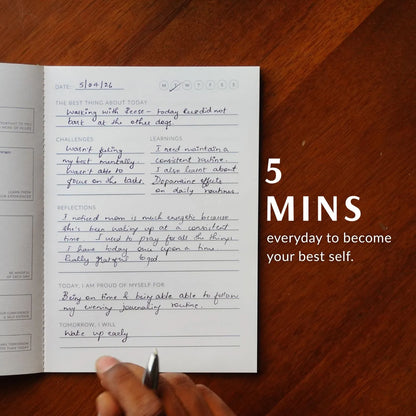 DATE: 5/04/26
M T W T F S S
THE BEST THING ABOUT TODAY
Working with Reese – today Reese did not
bark at the other dogs.
CHALLENGES
Wasn't feeling
my best mentally.
Wasn't able to
focus on the tasks.
LEARNINGS
I need maintain a
consistent routine.
I also learnt about
Dopamine effects
on daily routines
REFLECTIONS
I noticed mom is much energetic because
she's been waking up at a consistent
time. I used to pray for all the things
I have today once upon a time.
Really grateful to god
TODAY, I AM PROUD OF MYSELF FOR
Being on time & being able able to follow
my evening journaling routine.
TOMORROW, I WILL
Wake up early
5
MINS
everyday to become
your best self.